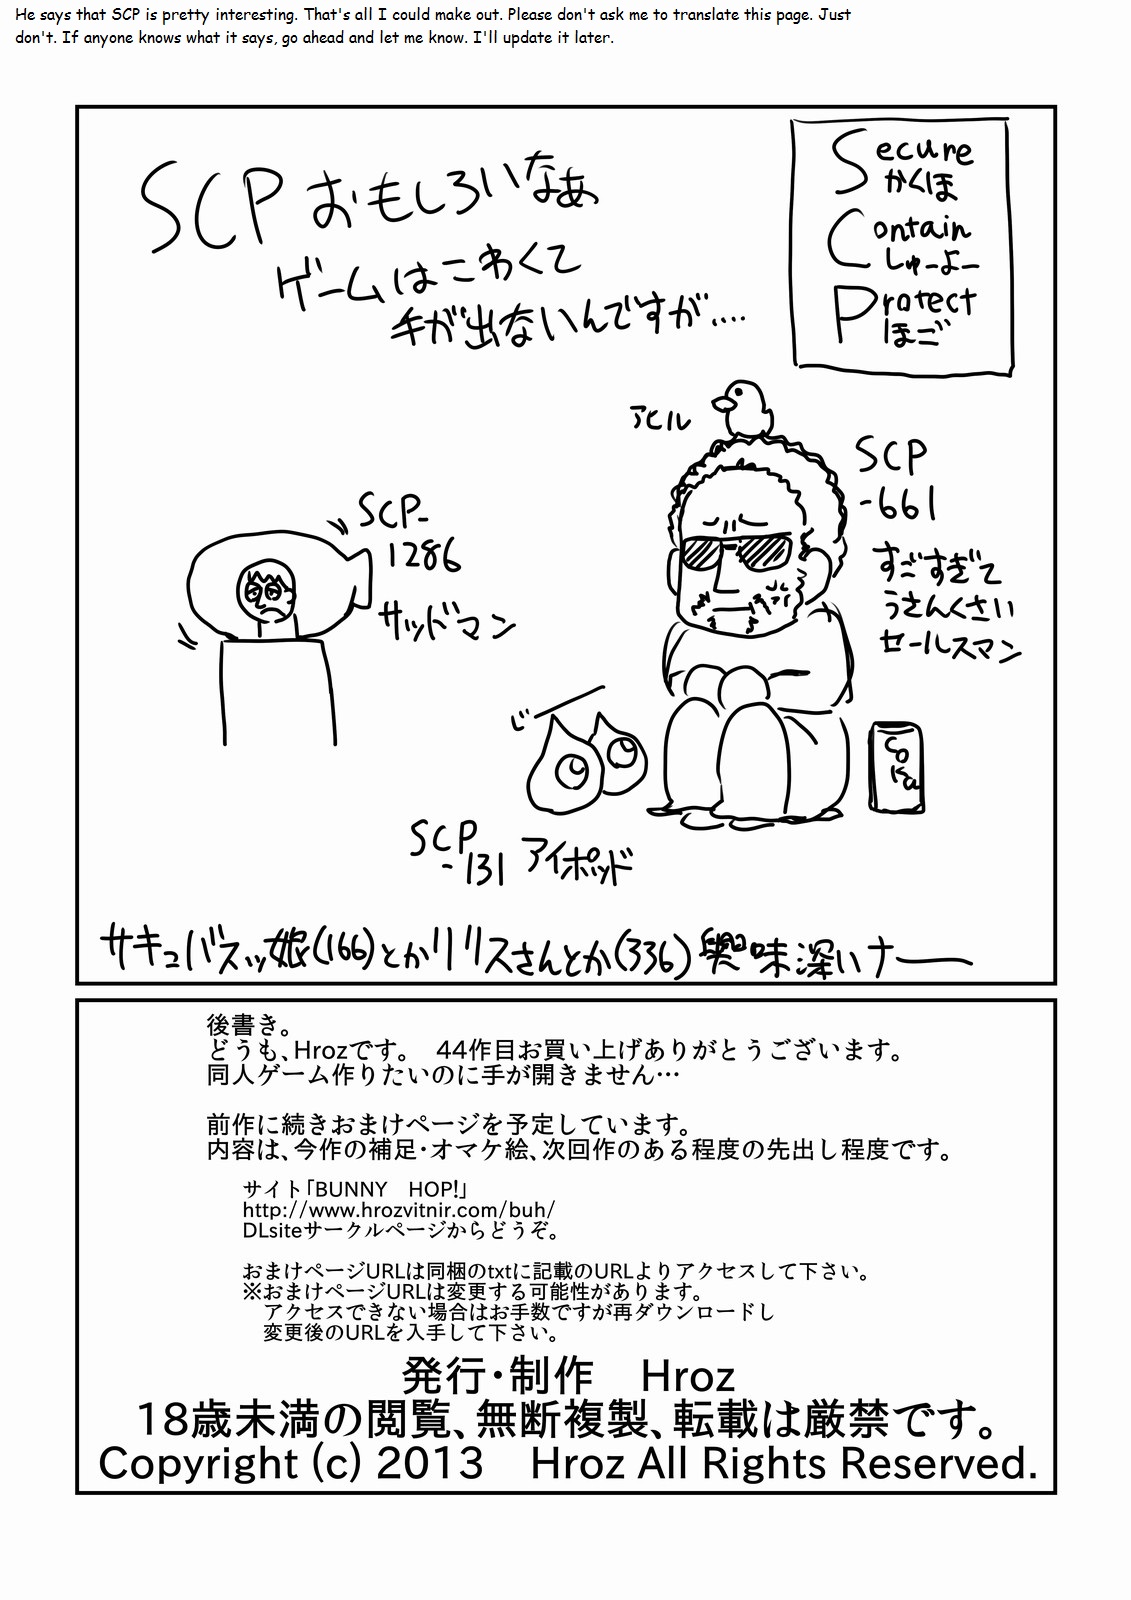 He says that SCP is pretty interesting. That's all I could make out. Please don't ask me to translate this page. Just
don't. If anyone knows what it says, go ahead and let me know. I'll update it later.
SCP おもしろいなぁ
ゲームはこわくて
手が出ないんですが....
Secure
かくほ
Contain
しゅーよー
Protect
ほご
アヒル
SCP
-661
すごすぎて
うさんくさい
セールスマン
SCP-
1286
サッドマン
じー
CoKa
SCP
-131 アイポッド
サキュバスッ娘(166)とかリリスさんとか(336)興味深いナー
後書き。
どうも、Hrozです。　44作目お買い上げありがとうございます。
同人ゲーム作りたいのに手が開きません…
前作に続きおまけページを予定しています。
内容は、今作の補足・オマケ絵、次回作のある程度の先出し程度です。
サイト「BUNNY　HOP!」
http://www.hrozvitnir.com/buh/
DLsiteサークルページからどうぞ。
おまけページURLは同梱のtxtに記載のURLよりアクセスして下さい。
※おまけページURLは変更する可能性があります。
アクセスできない場合はお手数ですが再ダウンロードし
変更後のURLを入手して下さい。
発行・制作　Hroz
18歳未満の閲覧、無断複製、転載は厳禁です。
Copyright (c) 2013　Hroz All Rights Reserved.